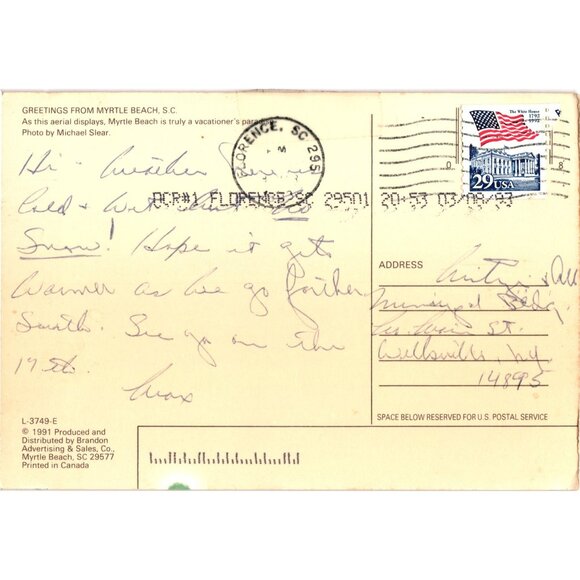 GREETINGS FROM MYRTLE BEACH, S.C.
As this aerial displays, Myrtle Beach is truly a vacationer's
Photo by Michael Slear.
FLORENCE, SC 295
OCR#1 FLORENCE SC 29501 20:53 03/08/93
The White House
1792
1992
29 USA
Hi - Weather here
Cold & Wet But No
Snow! Hope it gets
Warmer as we go farther
South. See ya on the
17th.
Max
ADDRESS
& All
Municipal Bldg.
St.
Wellsville, NY
14895
SPACE BELOW RESERVED FOR U.S. POSTAL SERVICE
L-3749-E
© 1991 Produced and
Distributed by Brandon
Advertising & Sales, Co.,
Myrtle Beach, SC 29577
Printed in Canada